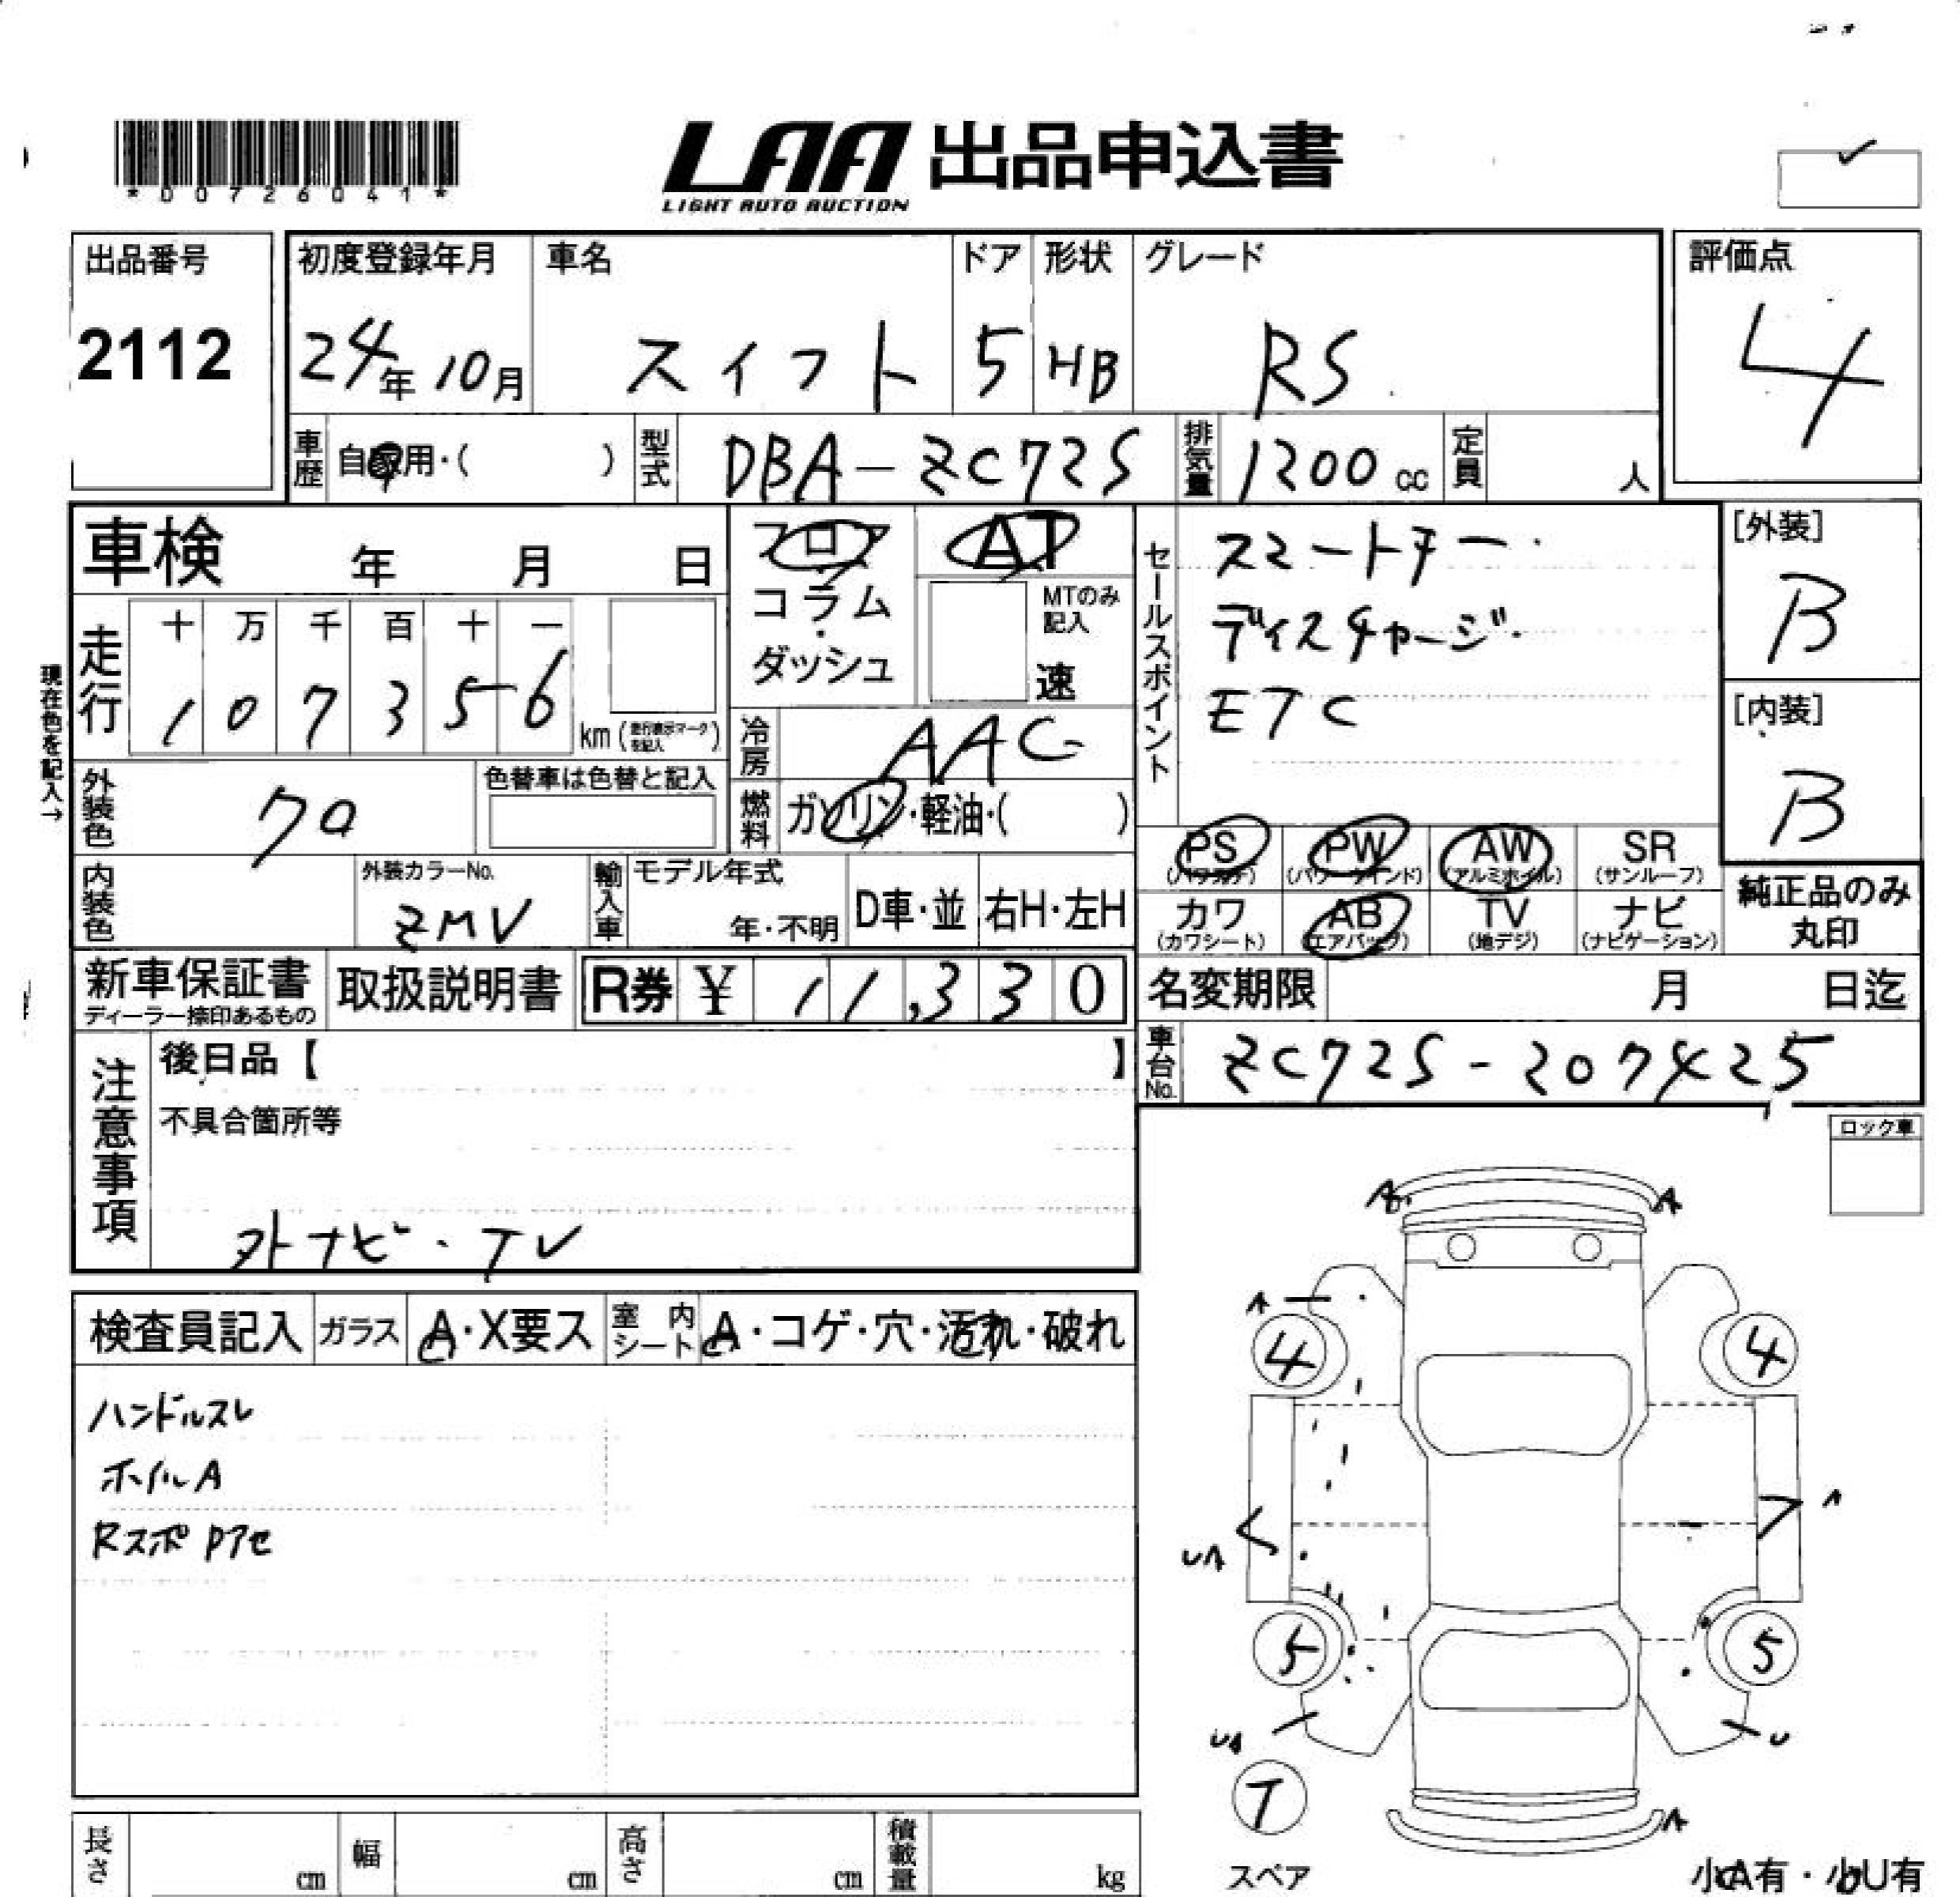 *D0726041*
LAA 出品申込書
LIGHT AUTO AUCTION
出品番号
2112
初度登録年月
24年10月
車名
スイフト
ドア
5
形状
HB
グレード
RS
評価点
4
車歴
自家用・( )
型式
DBA-ZC72S
排気量
1200cc
定員
人
車検 年 月 日
フロア
コラム
・
ダッシュ
AT
MTのみ記入
速
セールスポイント
スマートキー・
ディスチャージ・
ETC
[外装]
B
[内装]
B
現在色を記入→
走行
十 万 千 百 十 一
1 0 7 3 5 6
km(走行表示マークを記入)
冷房
AAC
燃料
ガソリン・軽油・( )
外装色
クロ
色替車は色替と記入
PS
(パワステ)
PW
(パワーウインド)
AW
(アルミホイル)
SR
(サンルーフ)
カワ
(カワシート)
AB
(エアバック)
TV
(地デジ)
ナビ
(ナビゲーション)
純正品のみ
丸印
内装色
外装カラーNo.
ZMV
輸入車
モデル年式
年・不明
D車・並
右H・左H
新車保証書
ディーラー捺印あるもの
取扱説明書
R券 ¥ 11,330
名変期限 月 日迄
車台No.
ZC72S-207425
注意事項
後日品【 】
不具合箇所等
外ナビ・TV
ロック車
検査員記入
ガラス
A・X要ス
室内シート
A・コゲ・穴・汚れ・破れ
ハンドルスレ
ホイルA
Rスポ Pアセ
A
A
A
4
4
UA
A
5
5
UA
U
T
スペア
A
小A有・小U有
長さ
cm
幅
cm
高さ
cm
積載量
kg